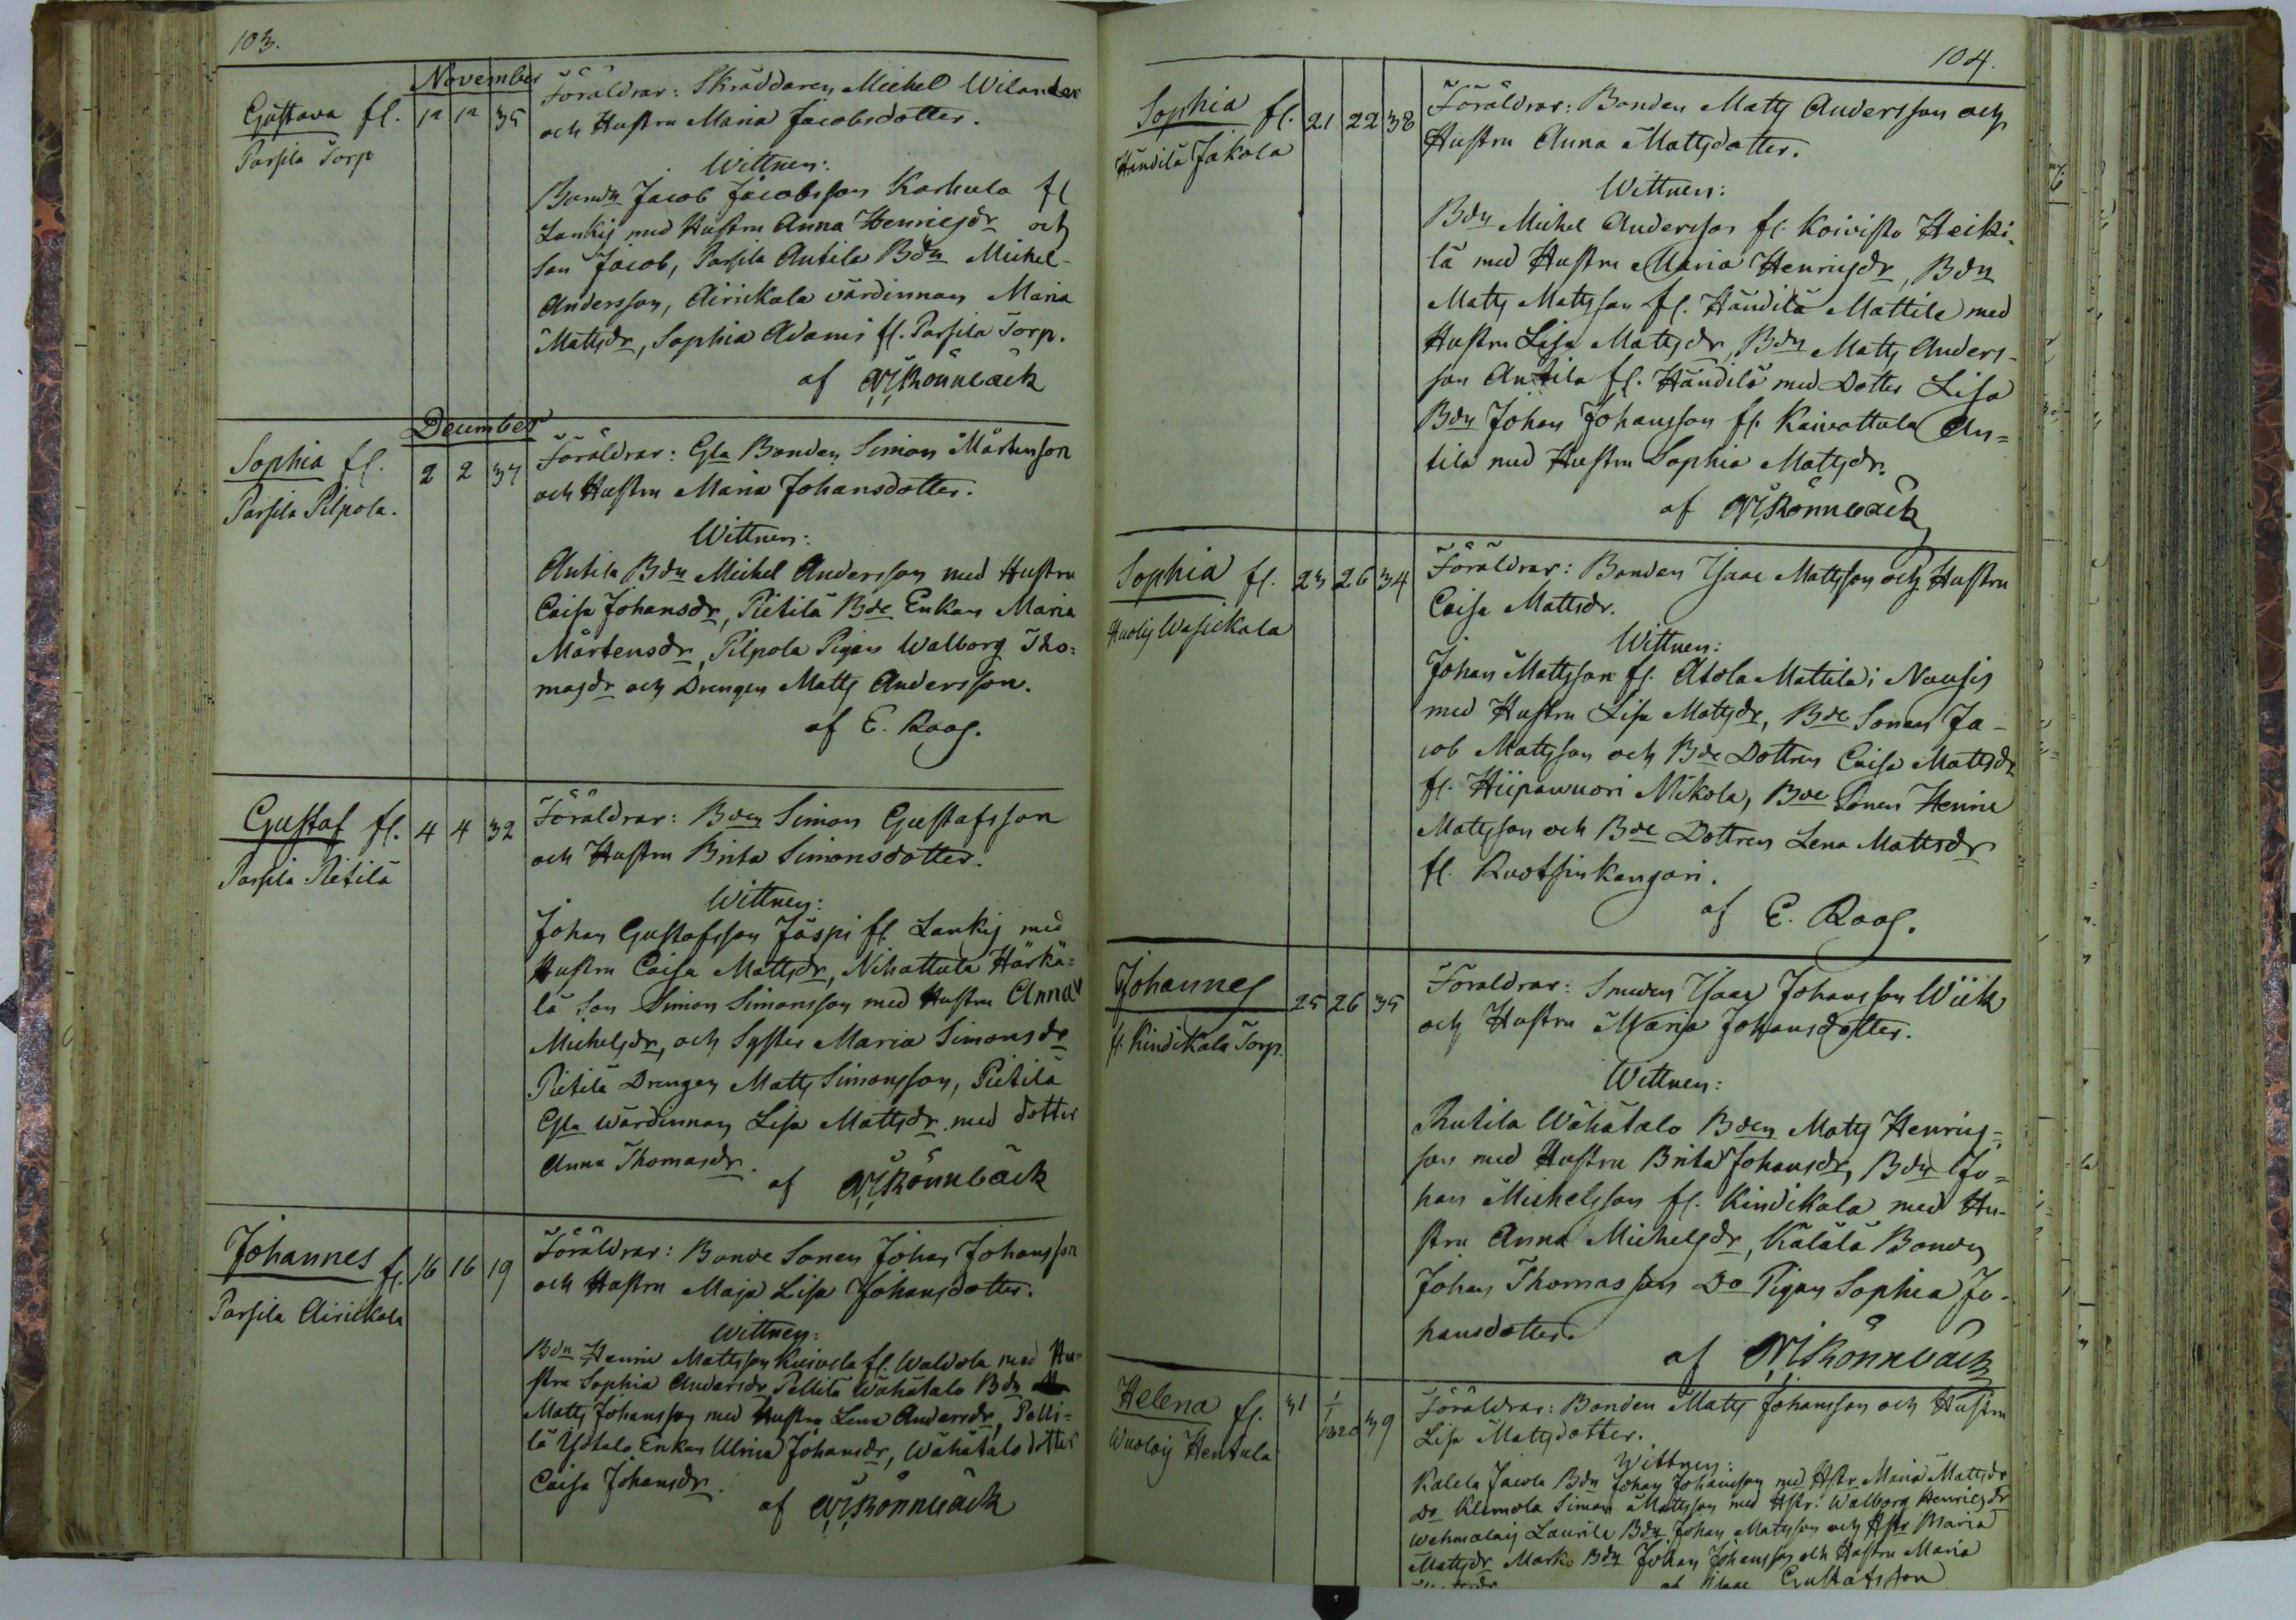 103.
November
Gustava fl. 12 12 35 Föräldrar: Skräddaren Michel Wilander
Parsila Torp och Hustru Maria Jacobsdotter.
Wittnen:
Bonden Jacob Jacobsson Karhula fl
Lankis med Hustru Anna Henricsdr och
Son Jacob, Parsila Antila Bdn Michel
Andersson, Airickala värdinnan Maria
Mattsdr, Sophia Adami fl. Parsila Torp.
af Rönnbäck
December
Sophia fl. 2 2 37 Föräldrar: Gla Bonden Simon Mårtensson
Parsila Pilpola. och Hustru Maria Johansdotter.
Wittnen:
Antila Bdn Michel Andersson med Hustru
Caisa Johansdr, Pietilä Bde Enkan Maria
Mårtensdr, Pilpola Pigan Walborg Tho=
masdr och Drengen Matts Andersson.
af E. Roos.
Gustaf fl. 4 4 32 Föräldrar: Bden Simon Gustafsson
Parsila Pietilä och Hustru Brita Simonsdotter.
Wittnen:
Johan Gustafsson Jäspi fl. Lankis med
Hustru Caisa Mattsdr, Nihattula Härkä=
lä Son Simon Simonsson med Hustru Anna
Michelsdr, och Syster Maria Simonsdr
Pietilä Drengen Matts Simonsson, Pietilä
Gla Wärdinnan Lisa Mattsdr med dotter
Anna Thomasdr.
af Rönnbäck
Johannes fl. 16 16 19 Föräldrar: Bonde Sonen Johan Johansson
Parsila Airickala och Hustru Maja Lisa Johansdotter.
Wittnen:
Bdn Henric Mattsson Kuivela fl. Waldola med Hu=
stru Sophia Andersdr Pellilä Wähätalo Bdn
Matts Johansson med Hustru Lena Andersdr, Pelli=
lä Ysitalo Enkan Ulrica Johansdr, Wähätalo dotter
Caisa Johansdr.
af Rönnbäck
104.
Sophia fl. 21 22 38 Föräldrar: Bonden Matts Andersson och
Händilä Jakola Hustru Anna Mattsdotter.
Wittnen:
Bdn Michel Andersson fl. Koivisto Heiki=
lä med Hustru Maria Henricsdr, Bdn
Matts Mattsson fl. Händilä Mattila med
Hustru Lisa Mattsdr, Bdn Matts Anders-
son Antila fl. Händilä med Dotter Lisa
Bdn Johan Johansson fl. Kaivattula An=
tila med Hustru Sophia Mattsdr.
af Rönnbäck
Sophia fl. 23 26 34 Föräldrar: Bonden Isaac Mattsson och Hustru
Huolis Wasickala Caisa Mattsdr.
Wittnen:
Johan Mattsson fl. Atola Mattila i Nousis
med Hustru Lisa Mattsdr, Bde Sonen Ja-
cob Mattsson och Bde Dottren Caisa Mattsdr
fl. Hiipawuori Mikola, Bde Sonen Henric
Mattsson och Bde Dottren Lena Mattsdr
fl. Ruotsinkangari.
af E. Roos.
Johannes 25 26 35 Föräldrar: Smeden Isaac Johansson Wiik
fl. Kindikala Torp. och Hustru Maria Johansdotter.
Wittnen:
Rutila Wähätalo Bden Matts Henrics=
son med Hustru Brita Johansdr, Bdn Jo=
han Michelsson fl. Kindikala med Hu-
stru Anna Michelsdr, Kälälä Bonden
Johan Thomasson Do Pigan Sophia Jo-
hansdotter.
af Rönnbäck
Helena fl. 31 1/1 1820 39 Föräldrar: Bonden Matts Johansson och Hustru
Wuolais Hentula Lisa Mattsdotter.
Wittnen:
Kalela Jacola Bdn Johan Johansson med Hstr Maria Mattsdr
Do Klemola Simon Mattsson med Hstr: Walborg Henricsdr
Wehmalais Laurila Bdn Johan Mattsson och Hstr Maria
Mattsdr Marko Bdn Johan Johansson och Hustru Maria
af Gustafsson